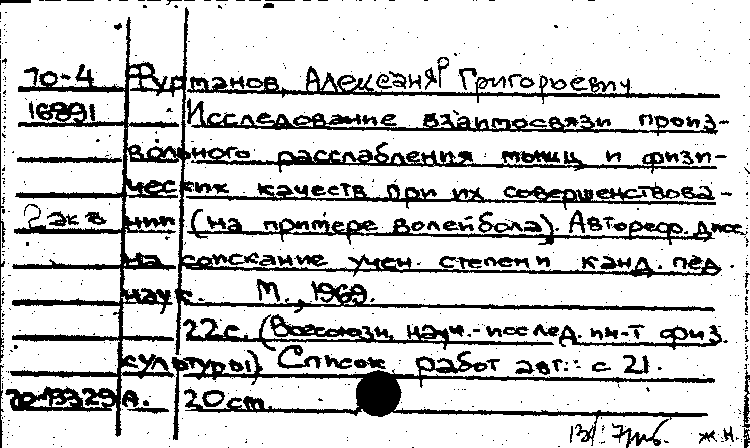 70-4 Фурманов, Александр Григорьевич
16891 Исследование взаимосвязи произ-
вольного расслабления мышц и физи-
ческих качеств при их совершенствова-
2 экз нии (на примере волейбола). Автореф. дисс.
на соискание учен. степени канд. пед.
наук. М., 1969.
22с. (Всесоюзн. науч.-исслед. ин-т физ.
культуры). Список работ авт.: с 21.
70-13329А. 20 см.
ж.н.